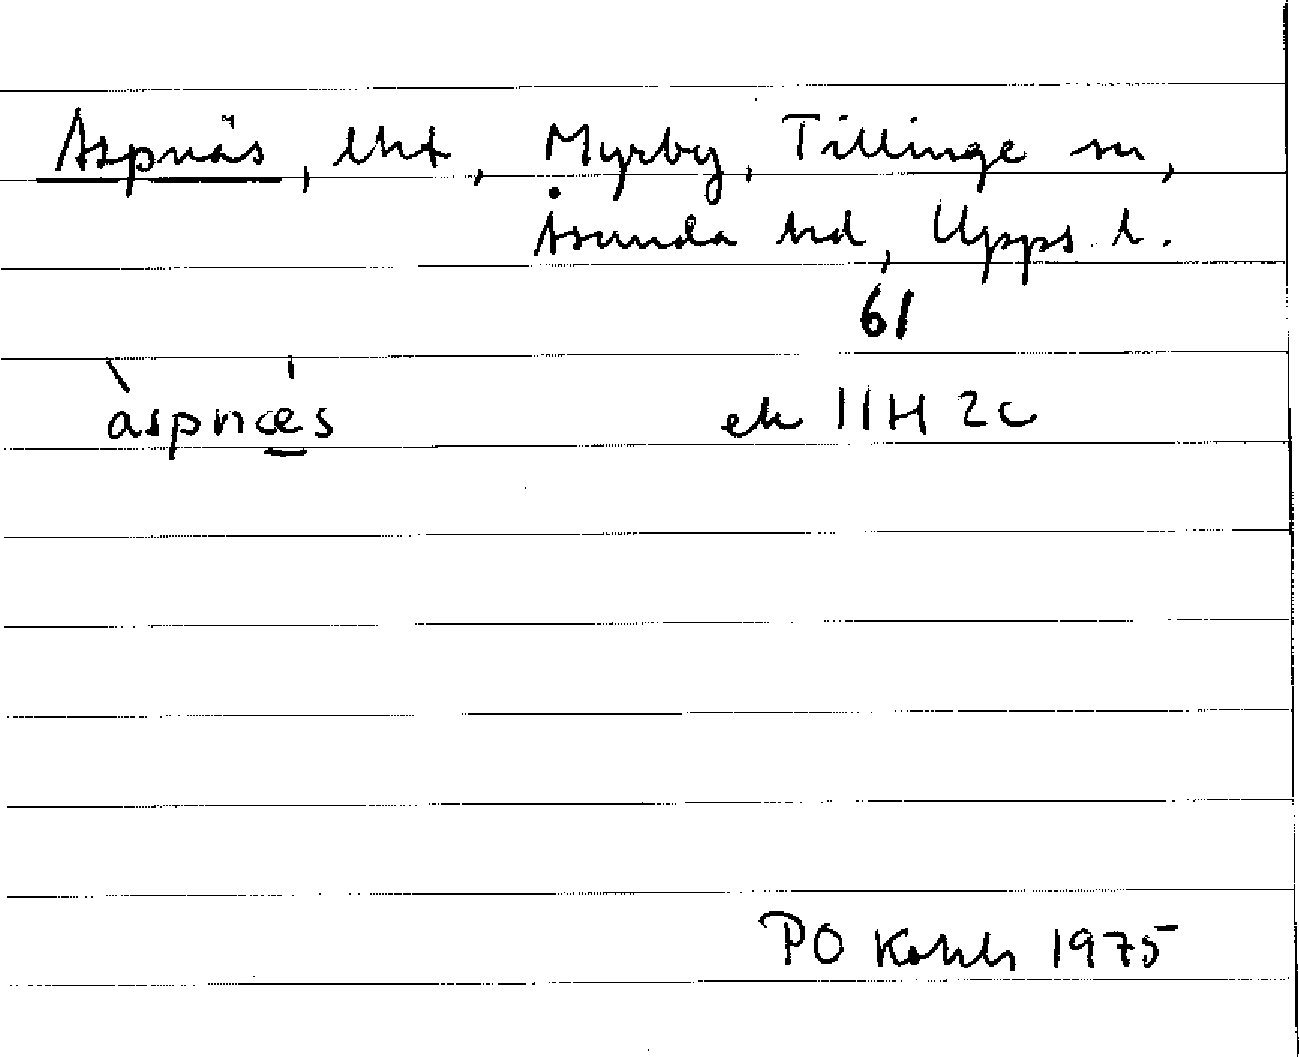 Aspnäs, lht, Myrby, Tillinge sn,
Åsunda hd, Upps. l.
61
àspnæs ek 11H 2c
PO 1975